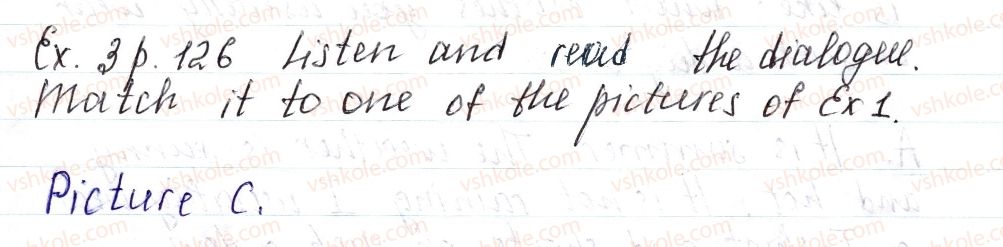 Ex. 3 p. 126 Listen and read the dialogue.
Match it to one of the pictures of Ex 1.
Picture C.